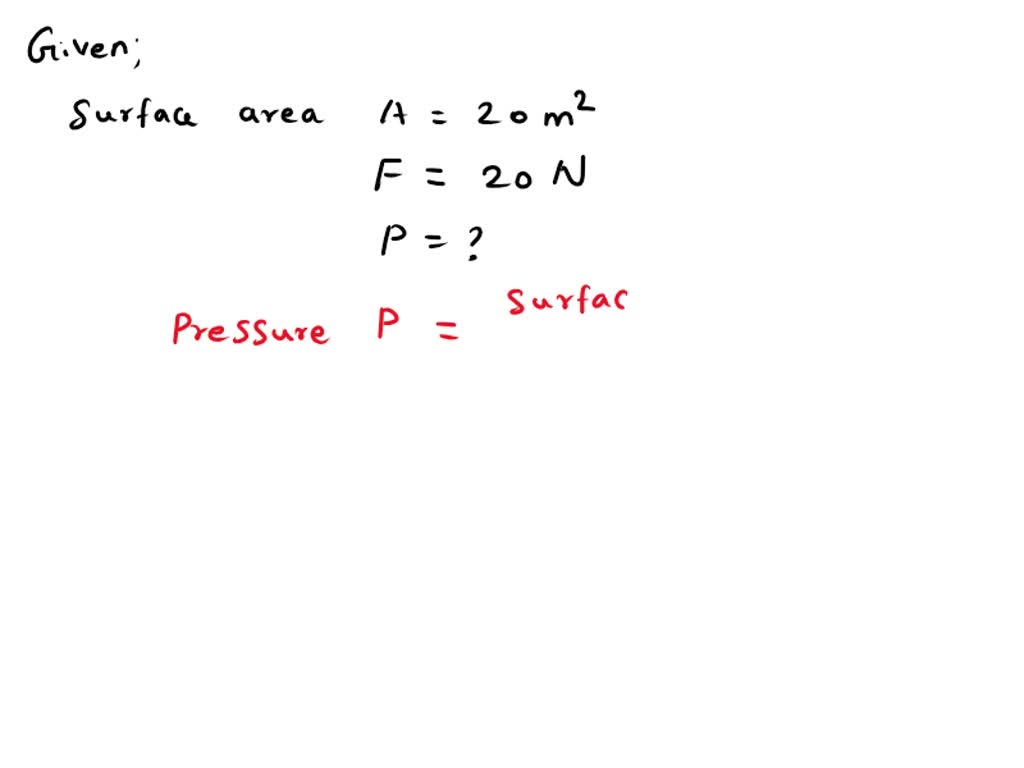 Given;
Surface area A = 20 m²
F = 20 N
P = ?
Surfac
Pressure P =